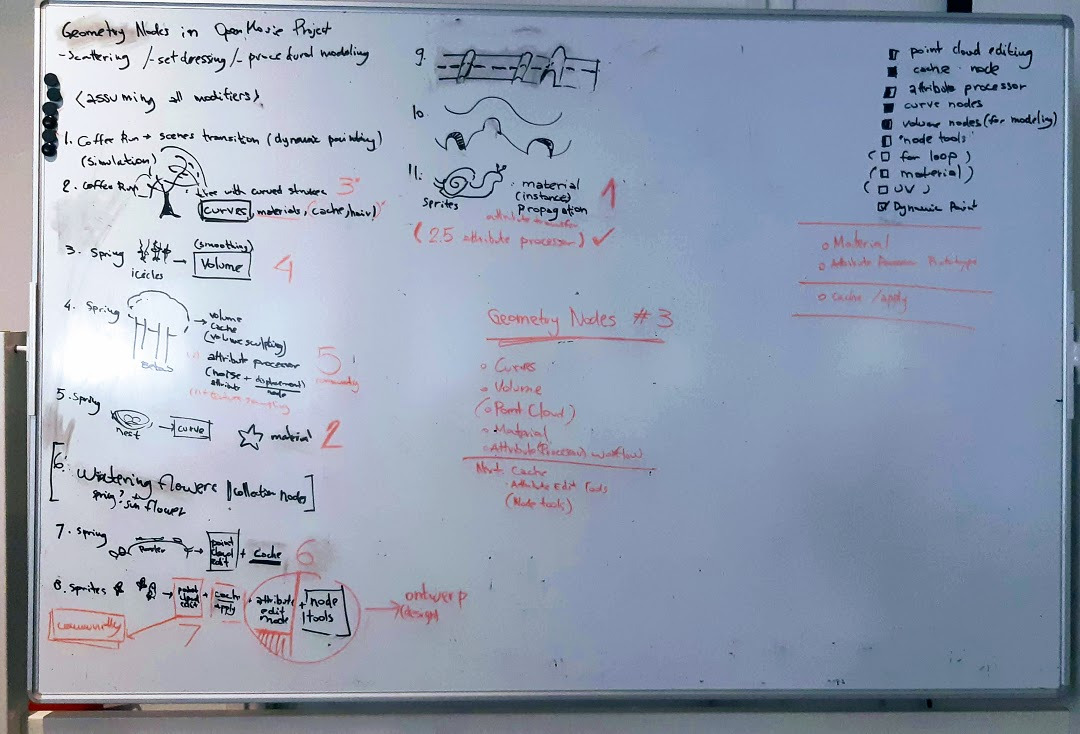 Geometry Nodes in Open Movie Project
- Scattering /- set dressing /- procedural modeling
(assuming all modifiers)
1. Coffee Run → scenes transition (dynamic painting)
(simulation)
2. Coffee Run
tree with curved strokes 3
(curves, materials, (cache, hair)
3. Spring
icicles
(smoothing)
Volume
4
4. Spring
→ volume
cache
(volume sculpting)
attribute processor
(noise + displacement)
attribute node
5
community
5. Spring
nest
→ curve
material 2
6. Wintering flowers
spring? sun flower
7. Spring
→ point cloud edit + cache
6
8. Sprites
→ point cloud edit + cache apply + attribute edit mode + node tools
→ ontwerp
(design)
community
7
9.
10
11.
Sprites
• material
(instance)
Propagation
attribute transfer
1
(2.5 attribute processor) ✓
Geometry Nodes #3
○ Curves
○ Volume
(○ Point Cloud)
• Material
○ Attribute (Processor) workflow
Next: Cache
• Attribute Edit Tools
(Node tools)
point cloud editing
cache node
attribute processor
curve nodes
volume nodes (for modeling)
node tools
( □ for loop )
( □ material )
( □ UV )
☑ Dynamic Paint
○ Material
○ Attribute Processor Prototype
○ Cache / apply